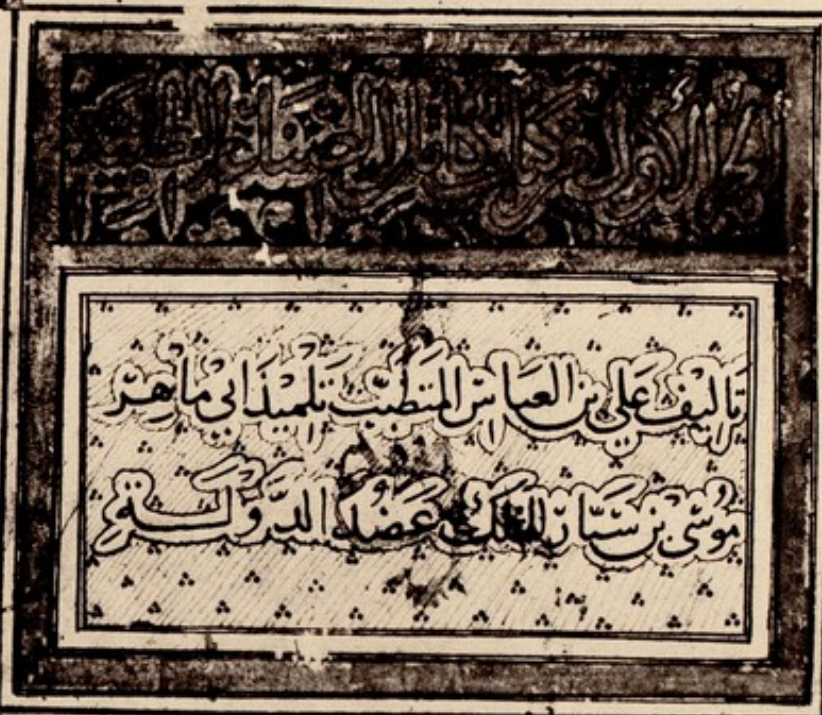 الجزء الاول من كتاب كامل الصناعة الطبية
تأليف علي بن العباس المتطبب تلميذ ابي ماهر
موسى بن سيار للملك عضد الدولة